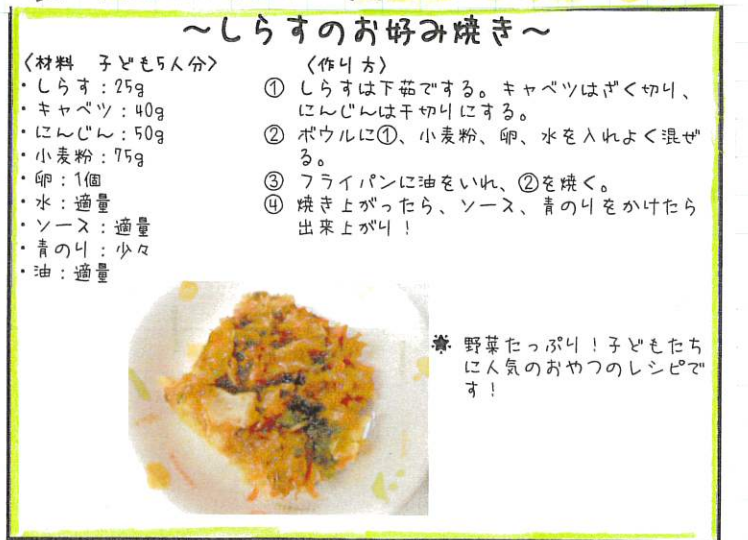 ～しらすのお好み焼き～
〈材料 子ども5人分〉
・しらす：25g
・キャベツ：40g
・にんじん：50g
・小麦粉：75g
・卵：1個
・水：適量
・ソース：適量
・青のり：少々
・油：適量
〈作り方〉
① しらすは下茹でする。キャベツはざく切り、
にんじんは千切りにする。
② ボウルに①、小麦粉、卵、水を入れよく混ぜ
る。
③ フライパンに油をいれ、②を焼く。
④ 焼き上がったら、ソース、青のりをかけたら
出来上がり！
野菜たっぷり！子どもたち
に人気のおやつのレシピで
す！